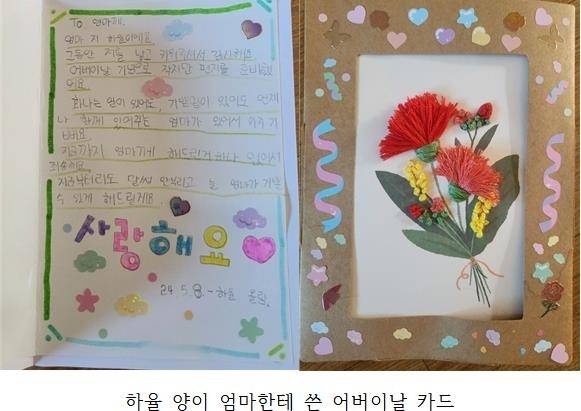 To 엄마께.
엄마 저 하율이에요
그동안 저를 낳고 키워주셔서 감사해요
어버이날 기념으로 작지만 편지를 준비했
어요
화나는 일이 있어도, 기쁜일이 있어도 언제
나 함께 있어주는 엄마가 있어서 아주 기
뻐요
지금까지 엄마께 해드린게 하나 없어서
죄송해요
지금부터라도 말썽 안부리고 늘 엄마가 기쁠
수 있게 해드릴게요
사랑해요
24. 5. 8. -하율 올림.
하율 양이 엄마한테 쓴 어버이날 카드